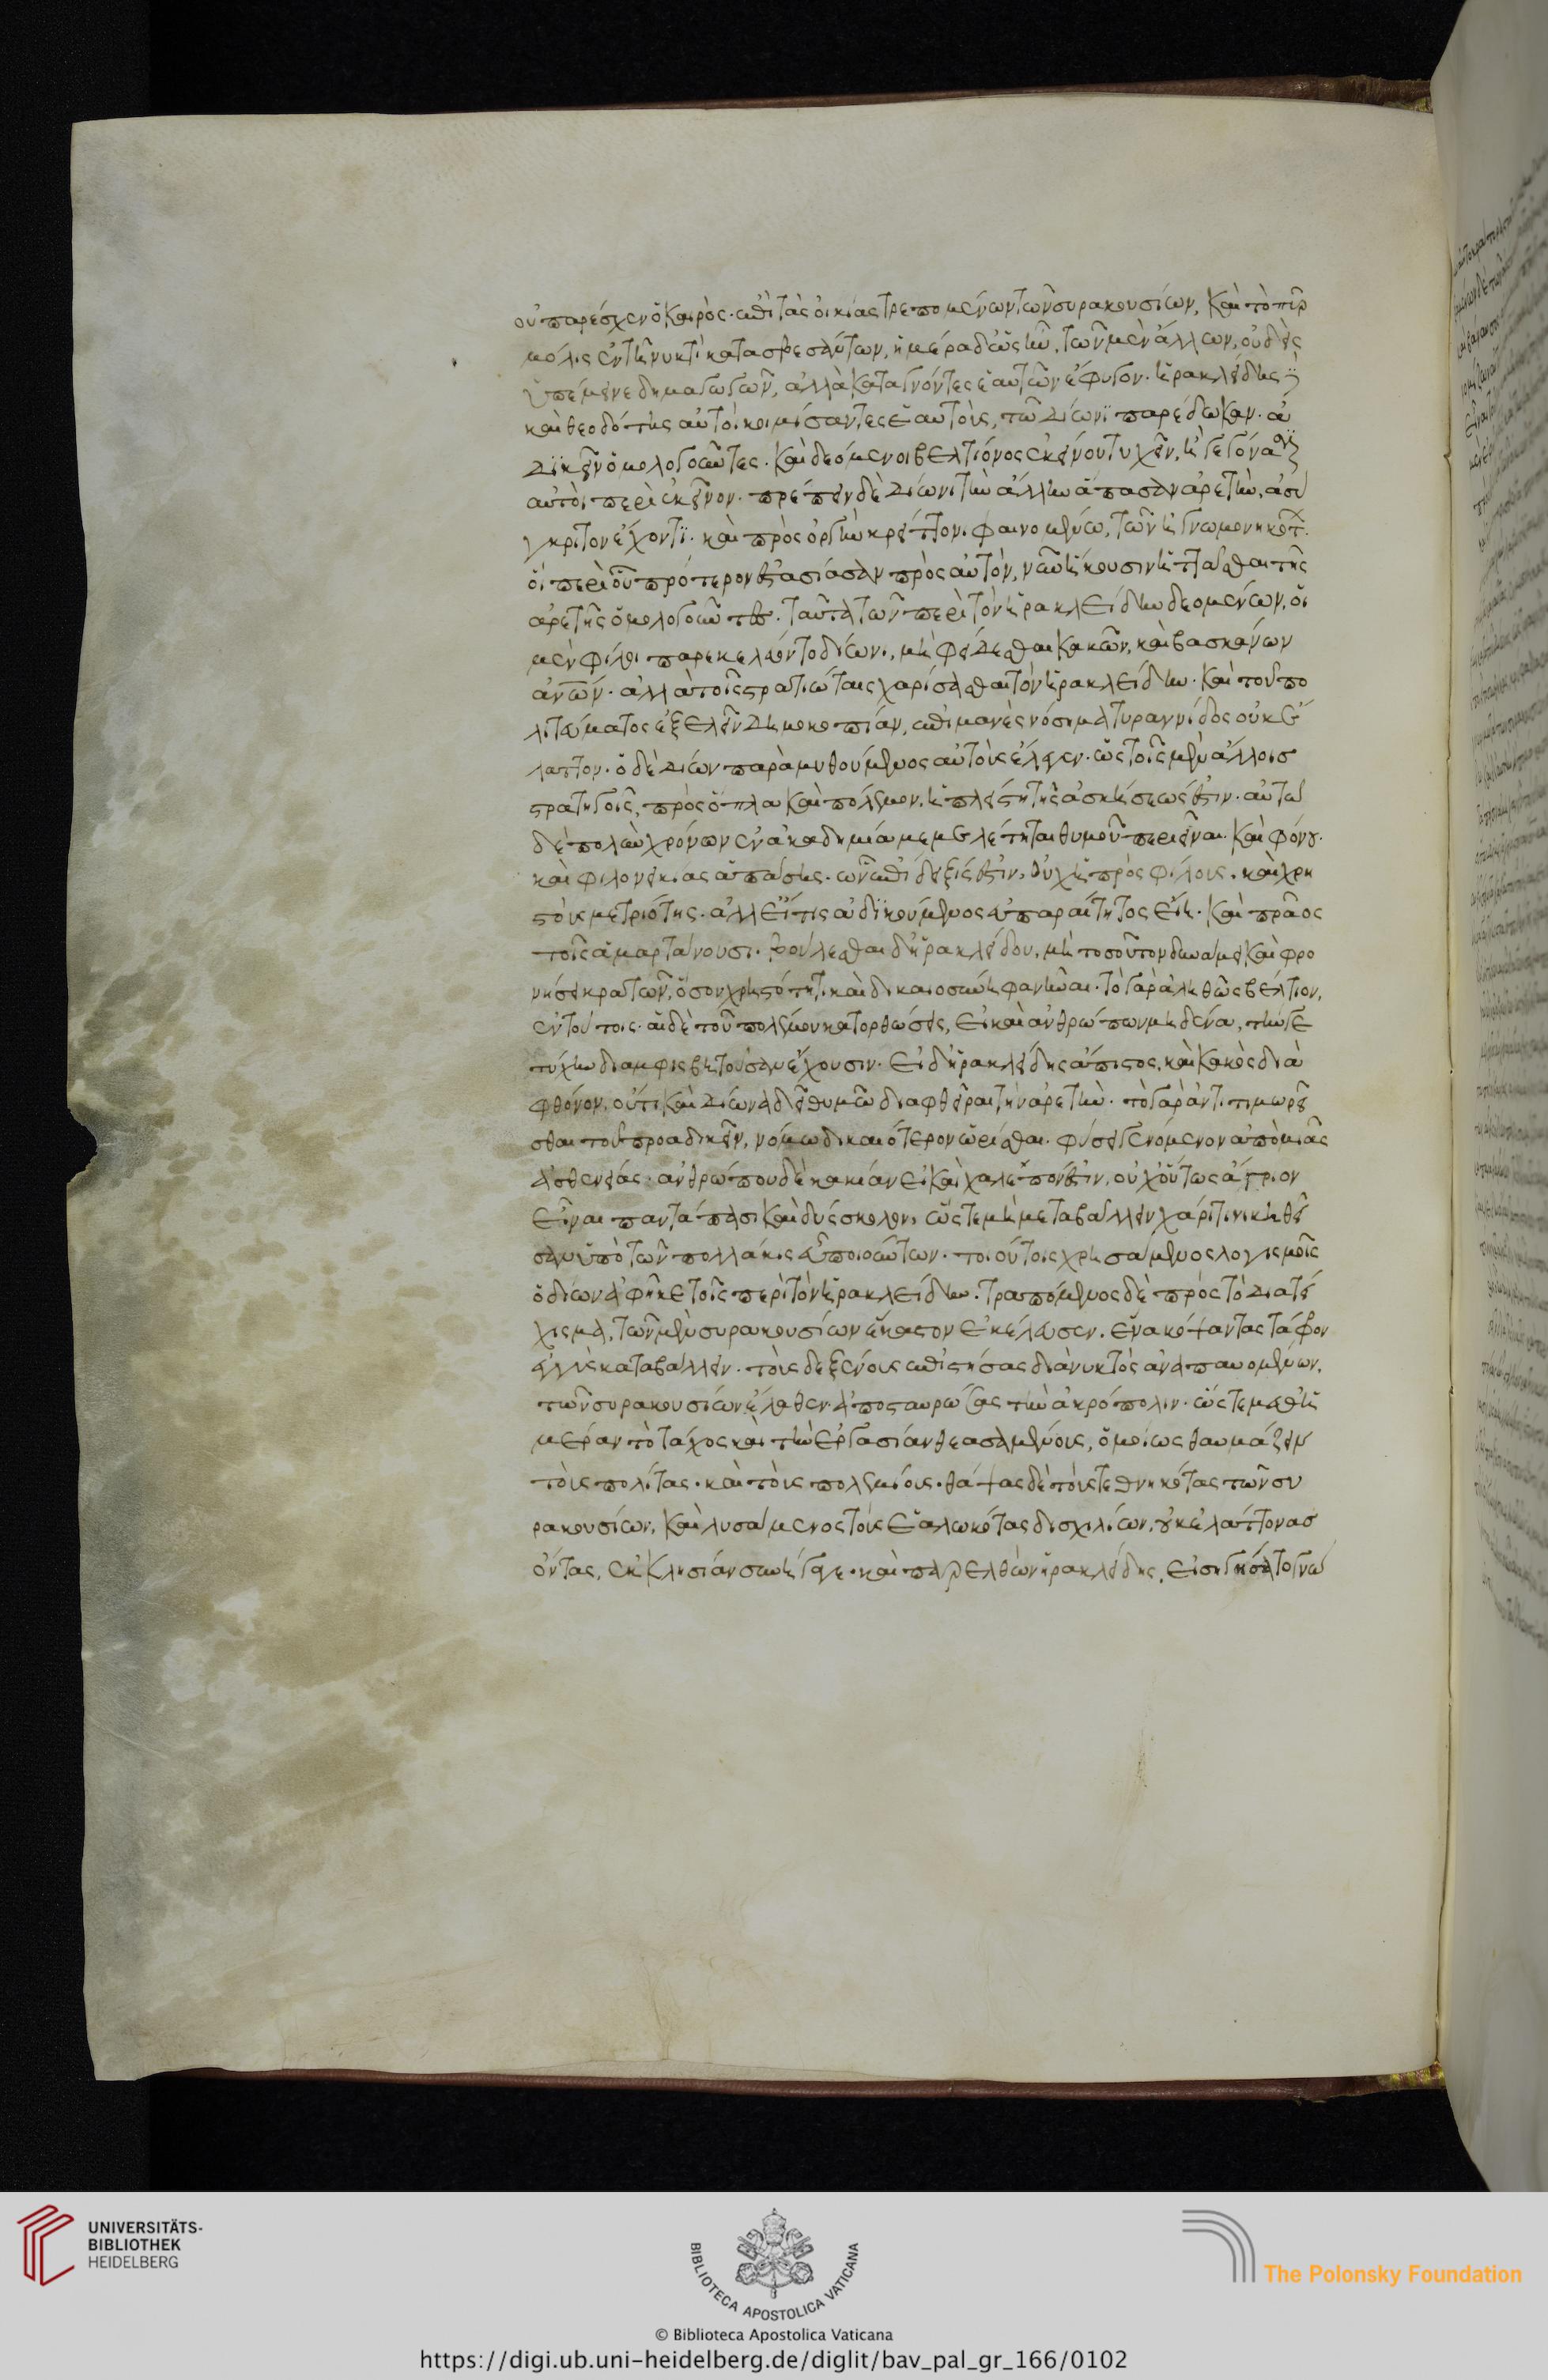 οὐ παρέσχεν ὁ καιρὸς. ἐπὶ τὰς οἰκίας τρεπομένων τῶν συρακουσίων, καὶ τὸ πῦρ
μόλις ἐν τῆ νυκτὶ κατασβεσάντων, ἡμέρα δ' ὡς ἦν, τῶν μὲν ἄλλων, οὐδεὶς
ὑπέμεινε δημαγωγῶν, ἀλλὰ καταγνόντες ἑαυτῶν ἔφυγον. ἡρακλείδης
καὶ θεοδότης αὐτοὶ κομίσαντες ἑαυτοὺς, τῶ δίωνϊ παρέδωκαν. ἀ
δϊκεῖν ὁμολογοῦντες. καὶ δεόμενοι βελτιόνος ἐκείνου τυχεῖν, ἢ γεγόνασϊ
αὐτοὶ περὶ ἐκεῖνον. πρέπειν δὲ δίωνι τὴν ἄλλην ἅπασαν ἀρετὴν, ἀσύ
γκριτον ἔχοντϊ. καὶ πρὸς ὀργὴν κρείττονι φαινομένω, τῶν ἠγνωμονηκότ
οἳ περὶ οὗ πρότερον ἐστασίασαν πρὸς αὐτὸν, νῦν ἥκουσιν ἡττᾶσθαι τῆς
ἀρετῆς ὁμολογοῦντες. ταῦτα τῶν περὶ τὸν ἡρακλείδην δεομένων, οἱ
μὲν φίλοι παρεκελεύοντο δίωνι, μὴ φείδεσθαι κακῶν, καὶ βασκάνων
ἀνῶν. ἀλλὰ τοῖς στρατιώταις χαρίσασθαι τὸν ἡρακλείδην. καὶ τοῦ πο
λιτεύματος ἐξελεῖν δημοκοπίαν, ἐπιμανὲς νόσημα τυραννίδος οὐκ ἔ
λαττον. ὁ δὲ δίων παραμυθούμενος αὐτοὺς ἔλεγεν. ὡς τοῖς μὲν ἄλλοισ
στρατηγοῖς, πρὸς ὅπλα καὶ πόλεμον, ἡ πλείστη τῆς ἀσκήσεως ἐστιν. αὐτῶ
δὲ πολὺν χρόνον ἐν ἀκαδημία μεμελέτηται θυμοῦ περιεῖναι. καὶ φόνου.
καὶ φιλονεικίας ἁπάσης. ὧν ἐπίδειξίς ἐστιν, οὐχ ἡ πρὸς φίλους. καὶ χρη
στοὺς μετριότης. ἀλλ' εἴ τις ἀδϊκούμενος εὐπαραίτητος εἴη. καὶ πρᾶος
τοῖς ἁμαρτάνουσι. βούλεσθαι δ' ἡρακλείδου, μὴ τοσοῦτον δυνάμει καὶ φρο
νήσει κρατῶν, ὅσον χρηστότητι καὶ δικαιοσύνη φανῆναι. τὸ γὰρ ἀληθῶς βέλτιον,
ἐν τούτοις. αἱ δὲ τοῦ πολέμου κατορθώσεις, εἰ καὶ ἀνθρώπων μηδένα, τήν γε
τύχην διαμφισβητοῦσαν ἔχουσιν. εἰ δ' ἡρακλείδης ἄπιστος, καὶ κακὸς διὰ
φθόνον, οὔτι καὶ δίωνα δεῖ θυμῶ διαφθεῖραι τὴν ἀρετὴν. τὸ γὰρ ἀντιτιμωρεῖ
σθαι τοῦ προαδικεῖν, νόμω δικαιότερον ὡρίσθαι. φύσει γενόμενον ἀπὸ μιᾶς
ἀσθενείας. ἀνθρώπου δὲ κακίαν εἰ καὶ χαλεπόν ἐστιν, οὐχ οὕτως ἄγριον
εἶναι παντάπασι καὶ δύσκολον, ὥστε μὴ μεταβάλλειν χάριτι νικηθεῖ
σαν ὑπὸ τῶν πολλάκις εὖ ποιούντων. τοιούτοις χρησάμενος λογισμοῖς
ὁ δίων ἀφῆκε τοῖς περὶ τὸν ἡρακλείδην. τραπόμενος δὲ πρὸς τὸ διατεί
χισμα, τῶν μὲν συρακουσίων ἕκαστον ἐκέλευσεν. ἕνα κόψαντας τάφον
ἐγγὺς καταβάλλειν. τοὺς δὲ ξένους ἐπιστήσας διὰ νυκτὸς ἀναπαυομένων,
τῶν συρακουσίων, ἔλαθεν ἀποσταυρώσας τὴν ἀκρόπολιν. ὥστε μεθ' ἡ
μέραν τὸ τάχος καὶ τὴν ἐργασίαν θεασαμένους, ὁμοίως θαυμάζειν
τοὺς πολίτας. καὶ τοὺς πολεμίους. θάψας δὲ τοὺς τεθνηκότας τῶν συ
ρακουσίων, καὶ λυσάμενος τοὺς ἑαλωκότας δισχιλίων, οὐκ ἐλάττονασ
ὄντας, ἐκκλησίαν συνήγαγε. καὶ παρελθὼν ἡρακλείδης, εἰσηγήσατο γνώ
UNIVERSITÄTS-
BIBLIOTHEK
HEIDELBERG
BIBLIOTECA APOSTOLICA VATICANA
The Polonsky Foundation
© Biblioteca Apostolica Vaticana
https://digi.ub.uni-heidelberg.de/diglit/bav_pal_gr_166/0102